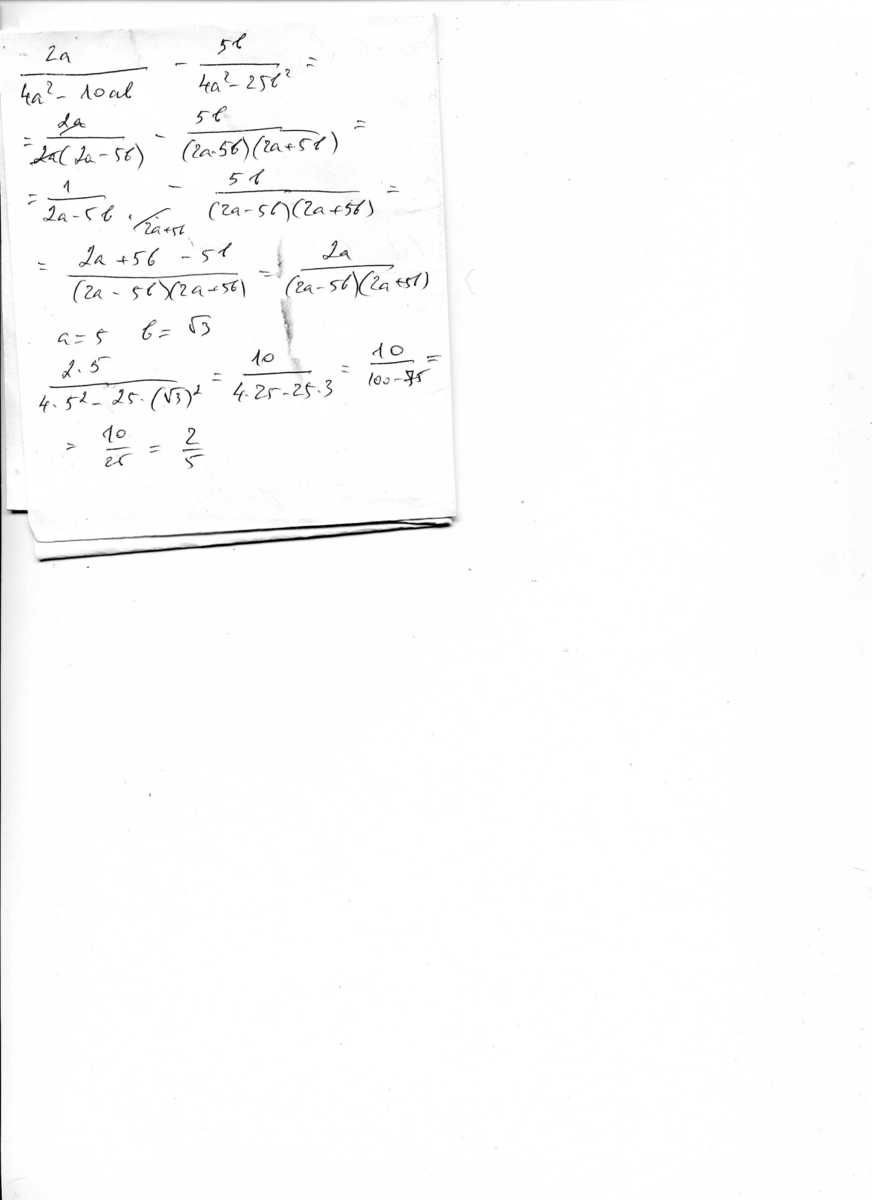 2a/(4a² - 10ab) - 5b/(4a² - 25b²) =
= 2a/(2a(2a - 5b)) - 5b/((2a-5b)(2a+5b)) =
= 1/(2a-5b) · /2a+5b - 5b/((2a-5b)(2a+5b)) =
= (2a + 5b - 5b)/((2a - 5b)(2a+5b)) = 2a/((2a-5b)(2a+5b))
a = 5 b = √3
(2·5)/(4·5² - 25·(√3)²) = 10/(4·25-25·3) = 10/(100-75) =
= 10/25 = 2/5